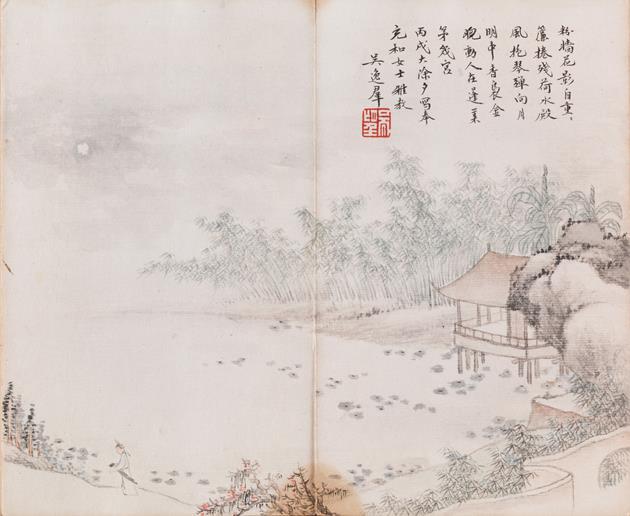 粉墻花影自重、
簾捲殘荷水殿
風抱琴彈向月
明中香裊金
猊動人在蓬萊
第幾宮
丙戌大除夕寫奉
充和女士雅教
吳逸羣